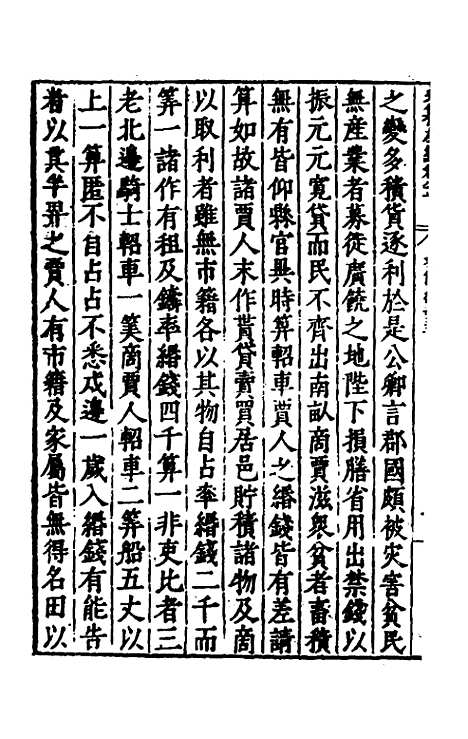 之變多積貨逐利於是公卿言郡國頗被灾害貧民
無産業者募徙廣饒之地陛下損膳省用出禁錢以
振元元寛貸而民不齊出南畝商賈滋衆貧者畜積
無有皆仰縣官異時算軺車賈人之緡錢皆有差請
算如故諸賈人末作貰貸賣買居邑貯積諸物及商
以取利者雖無市籍各以其物自占率緡錢二千而
筭一諸作有租及鑄率緡錢四千算一非吏比者三
老北邊騎士軺車一筭商賈人軺車二筭船五丈以
上一筭匿不自占占不悉戍邊一歲入緡錢有能告
者以其半畀之賈人有市籍及家屬皆無得名田以